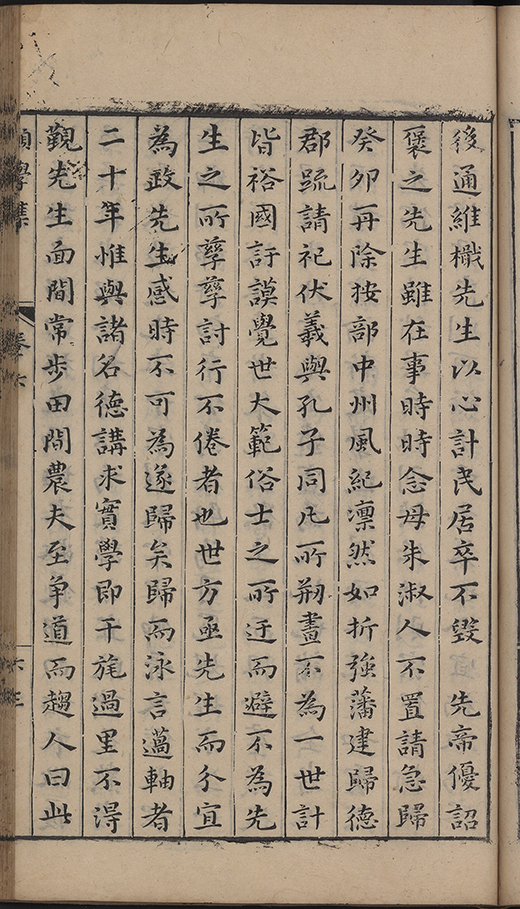 後通維檝先生以心計民居卒不毀　先帝優詔
褒之先生雖在事時時念母朱淑人不置請急歸
癸卯再除按部中州風紀凛然如折強藩建歸德
郡䟽請祀伏羲與孔子同凡所剏畫不為一世計
皆裕國訏謨覺世大範俗士之所迂而避不為先
生之所孳孳討行不倦者也世方亟先生而分宜
為政先生感時不可為遂歸矣歸而泳言薖軸者
二十年惟與諸名德講求實學即干旄過里不得
觀先生面間常步田間農夫至爭道而趨人曰此
學集
卷六
六三